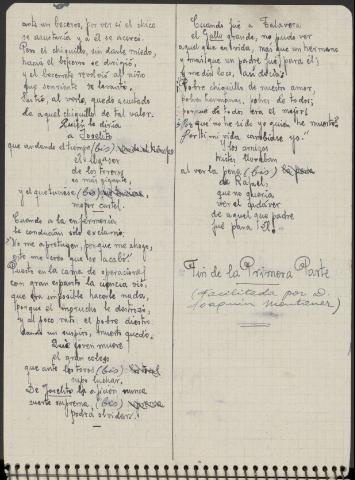 ante un becerro, por ver si el chico
se asustaría y a él se acercó.
Pero el chiquillo, sin darle miedo,
hacia el becerro se dirigió,
y el becerrete revolvió al niño
que sonriente se levantó.
Su tío, al verlo, quedó asustado
de aquel chiquillo de tal valor.
Quién diría
a Joselito
que andando el tiempo (bis)
el
de los toreros
es más gigante,
y el que tuviese (bis)
mejor cartel.
Cuando a la enfermería
le conducían sólo exclamó:
"No me apretujen, porque me ahogo,
esto me creo que se acabó."
Puesto en la cama de operaciones
con gran espanto la ciencia vió,
que era imposible hacerle nada,
porque el morucho le destrozó,
y al poco rato el pobre diestro
dando un suspiro, muerto quedó.
Qué joven muere
el gran coloso
que ante los toros (bis)
supo luchar.
De Joselito la afición nunca
suerte suprema (bis)
podrá olvidar.
Cuando fué a Talavera
el Gallo grande, no pudo ver
aquel que en vida, más que un hermano
y más que un padre fué para él;
y medio loco, así decía:
"Pobre chiquillo de nuestro amor,
pobre hermano, pobre de todos;
porque de todos era el mejor!
Por qué no he sido yo quién he muerto?
Por tí mi vida cambiase yo."
Y los amigos
tristes lloraban
al ver la pena (bis)
de Rafael;
que no quería
ver el cadáver
de aquel que padre
fué para él.
Fin de la Primera Parte
(facilitada por D.
Joaquín Montaner)